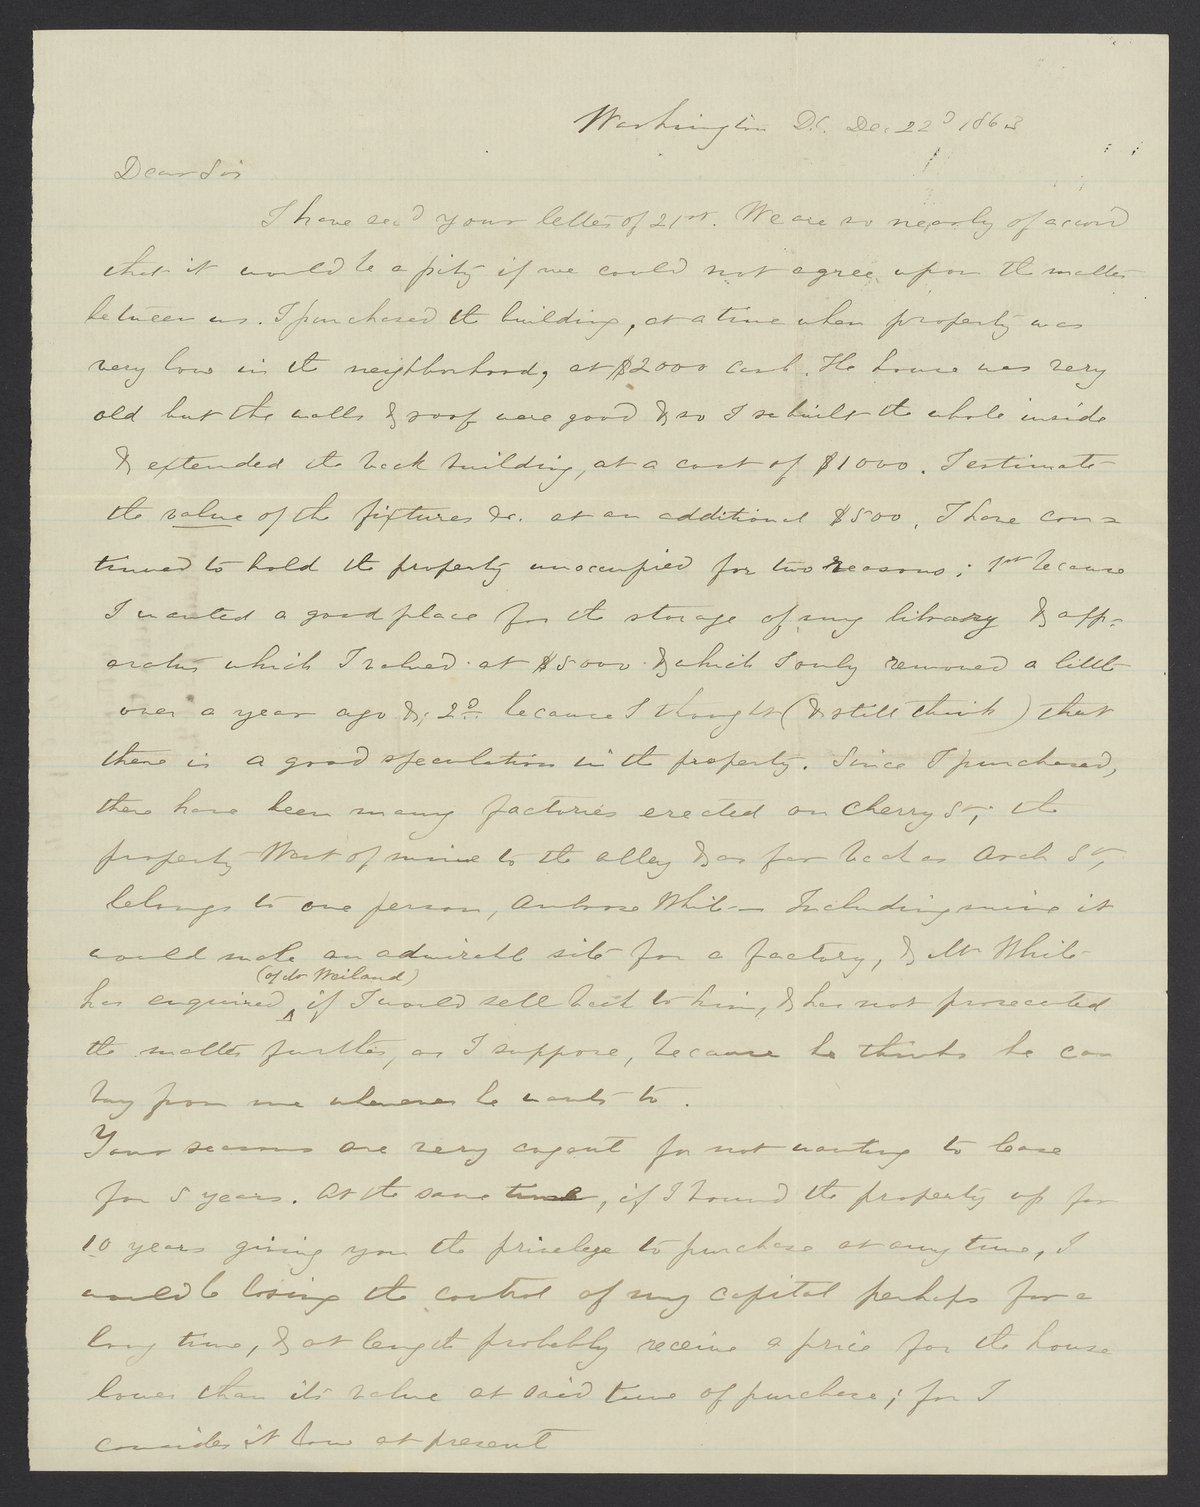 Washington D.C. Dec 22d 1863
Dear Sir
I have recd your letter of 21st. We are so nearly of accord
that it would be a pity if we could not agree upon the matter
between us. I purchased the building, at a time when property was
very low in the neighborhood, at $2000 cash. The house was very
old but the walls & roof were good & so I rebuilt the whole inside
& extended the back building, at a cost of $1000. I estimate
the value of the fixtures &c. at an additional $500. I have con=
tinued to hold the property unoccupied for two reasons; 1st because
I wanted a good place for the storage of my library & app=
aratus which I valued at $5000 & which I only removed a little
over a year ago &; 2d because I thought (& still think) that
there is a good speculation in the property. Since I purchased,
there have been many factories erected on Cherry St; the
property West of mine to the alley & as far back as Arch St,
belongs to one person, Ambrose White — Including mine it
would make an admirable site for a factory, & Mr White
(of Mr Weiland)
has enquired, if I would sell back to him, & has not prosecuted
the matter further, as I suppose, because he thinks he can
buy from me whenever he wants to.
Your reasons are very cogent for not wanting to lease
for 5 years. At the same time, if I bound the property up for
10 years giving you the privelege to purchase at any time, I
would be losing the control of my capital perhaps for a
long time, & at length probably receive a price for the house
lower than its value at said time of purchase; for I
consider it low at present